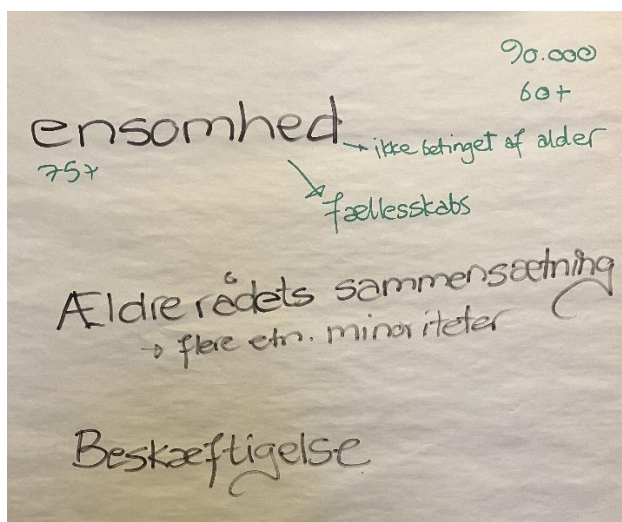 90.000
60+
ensomhed → ikke betinget af alder
75+
fællesskabs
Ældrerådets sammensætning
→ flere etn. minoriteter
Beskæftigelse